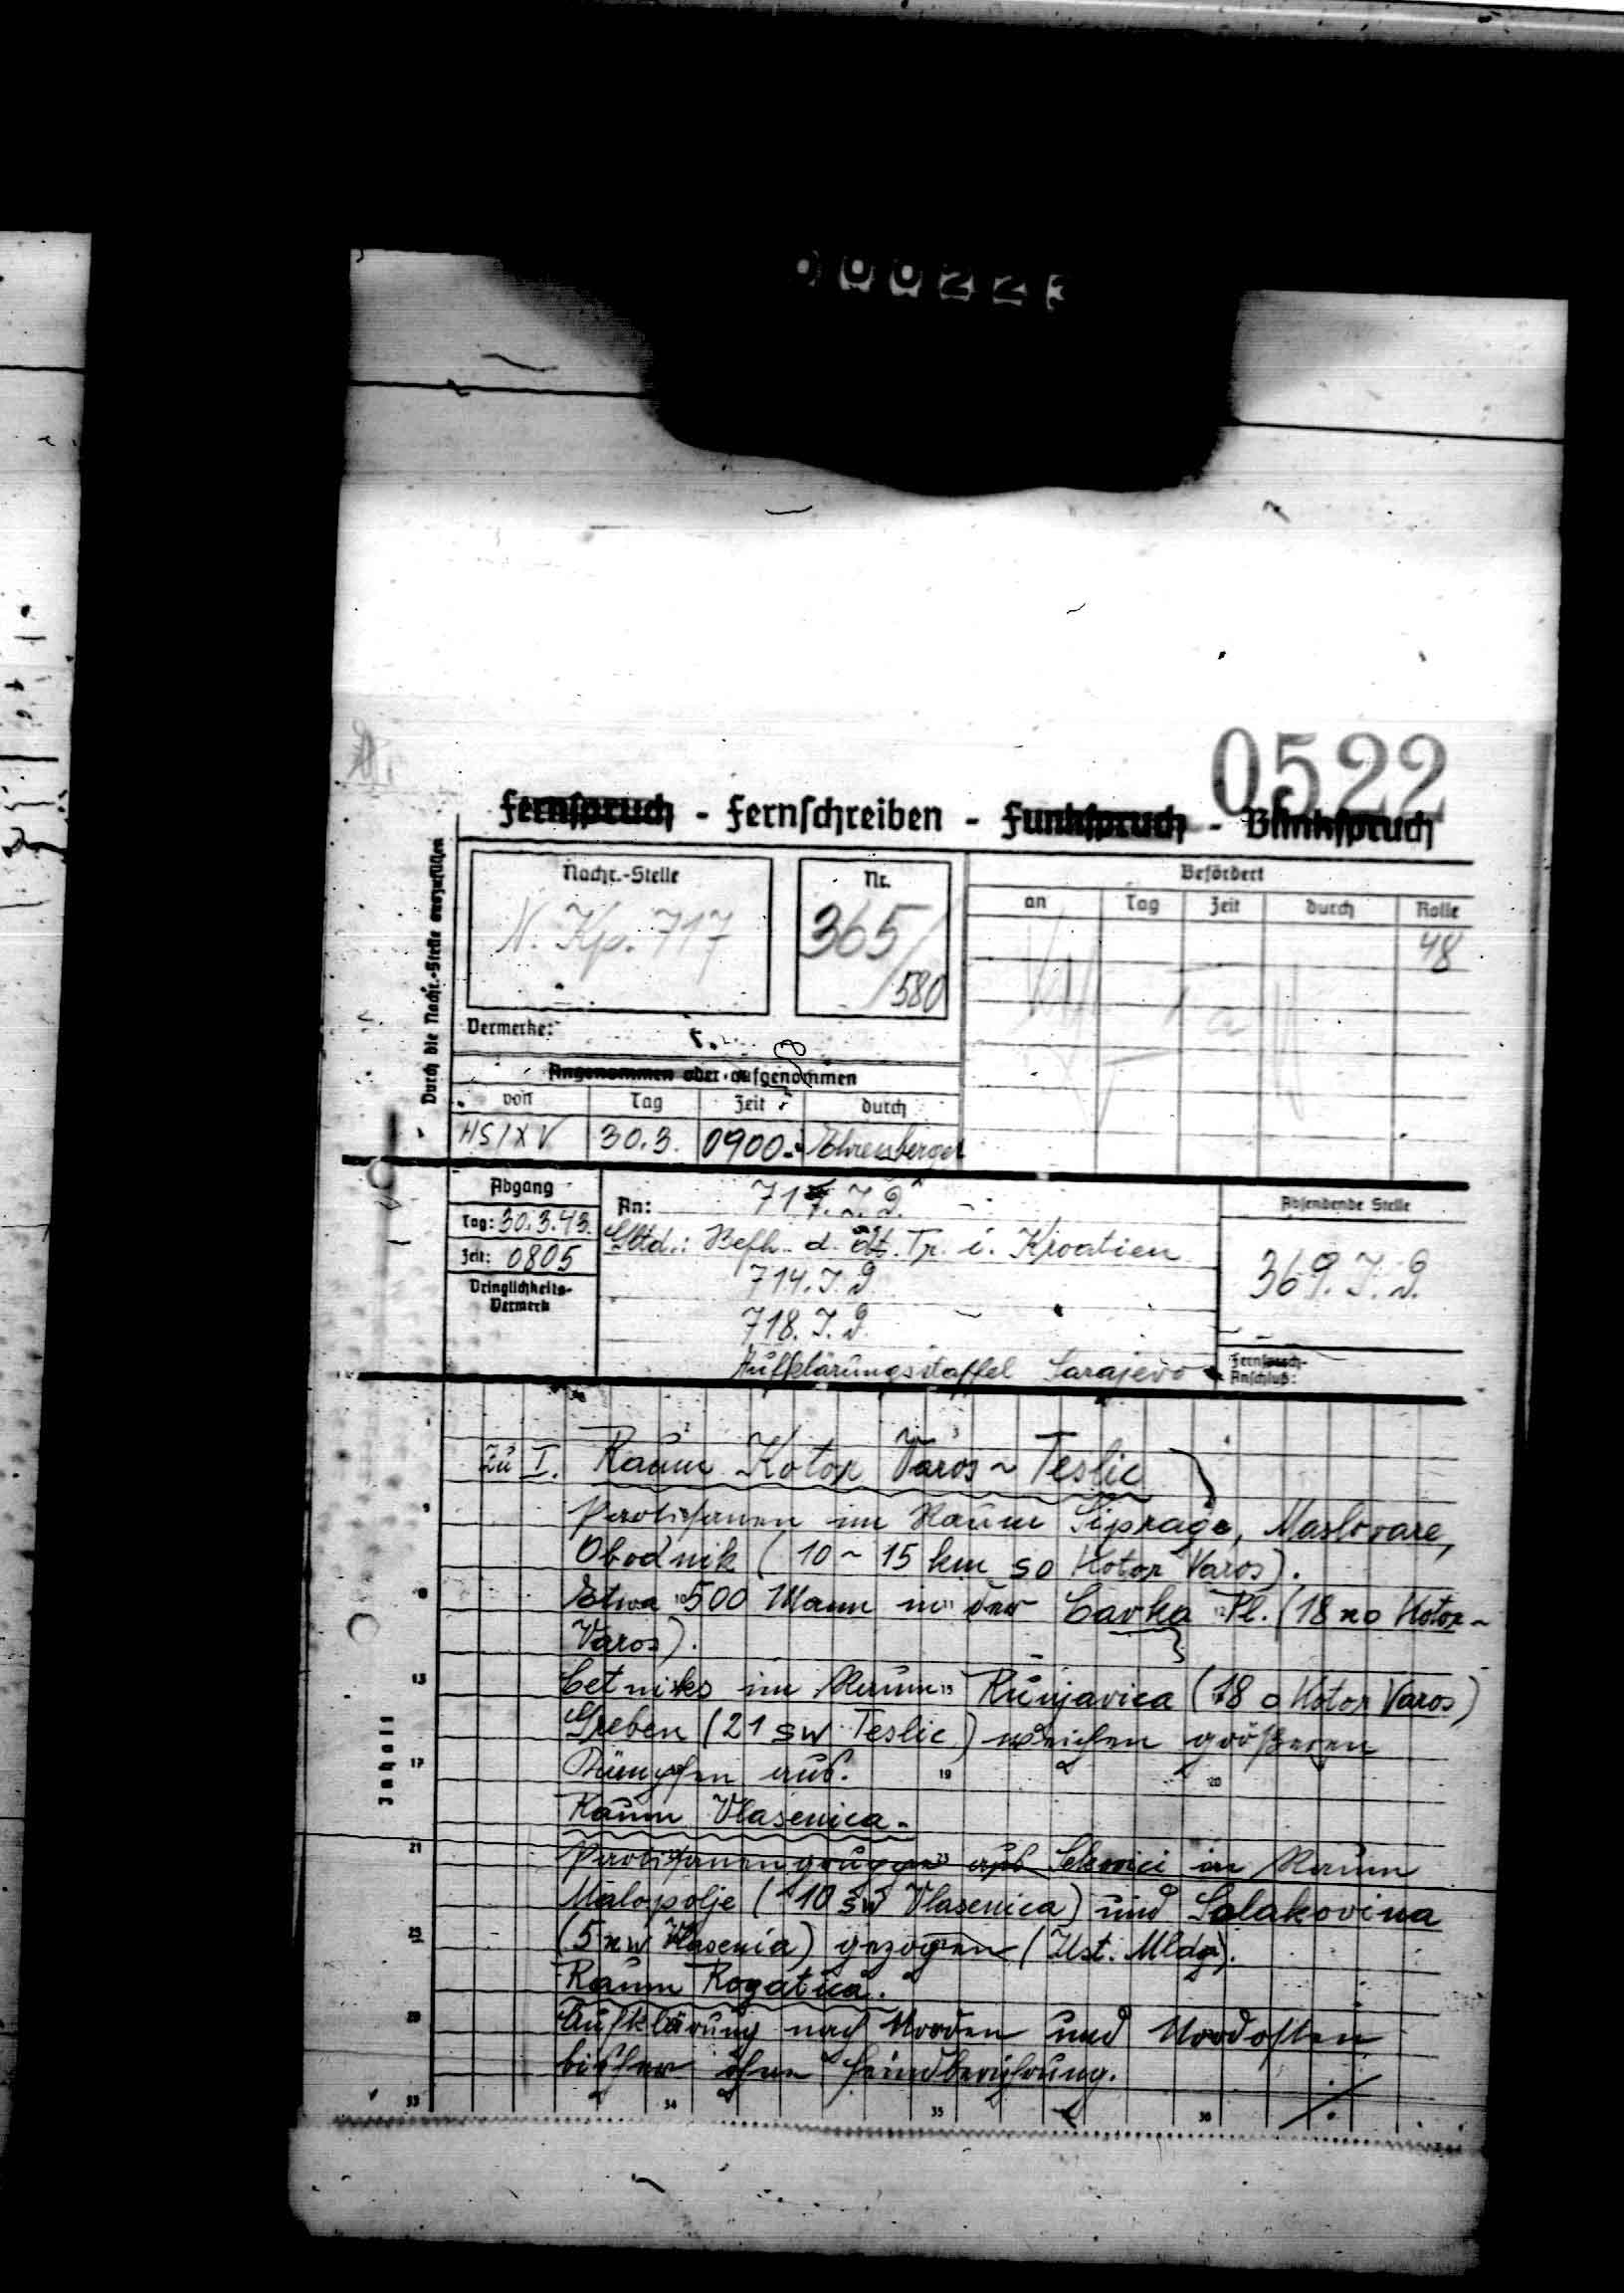 000223
0522
Fernspruch - Fernschreiben - Funkspruch - Blinkspruch
Durch die Nachr.-Stelle auszufüllen
Nachr.-Stelle
N. Kp. 717
Nr.
365/
580
Befördert
an Tag Zeit durch Rolle
48
Vermerke:
Angenommen oder aufgenommen
von Tag Zeit durch
HS/XV 30.3. 0900 Ehrenberger
Abgang
Tag: 30.3.43.
Zeit: 0805
Dringlichkeits-
Vermerk
An: 717. I. D.
Befh. d. dt. Tr. i. Kroatien
714. I. D.
718. I. D.
Aufklärungsstaffel Sarajevo
Absendende Stelle
369. I. D.
Fernsprech-
Anschluß:
Inhalt
Zu I. Raum Kotor Varos ~ Teslic
Partisanen im Raum Siprage, Maslovare,
Obodnik (10 ~ 15 km so Kotor Varos).
Etwa 500 Mann in der Cavka Pl. (18 no Kotor ~
Varos).
Cetniks im Raum Runjavica (18 o Kotor Varos)
Greben (21 sw Teslic) weichen größeren
Kämpfen aus.
Raum Vlasenica.
Partisanengruppe aus Sekovici in Raum
Malopolje (10 sw Vlasenica) und Salakovina
(5 nw Vlasenia) gezogen (Ust. Mldg).
Raum Rogatica.
Aufklärung nach Norden und Nordosten
bisher ohne Feindberührung.
./.